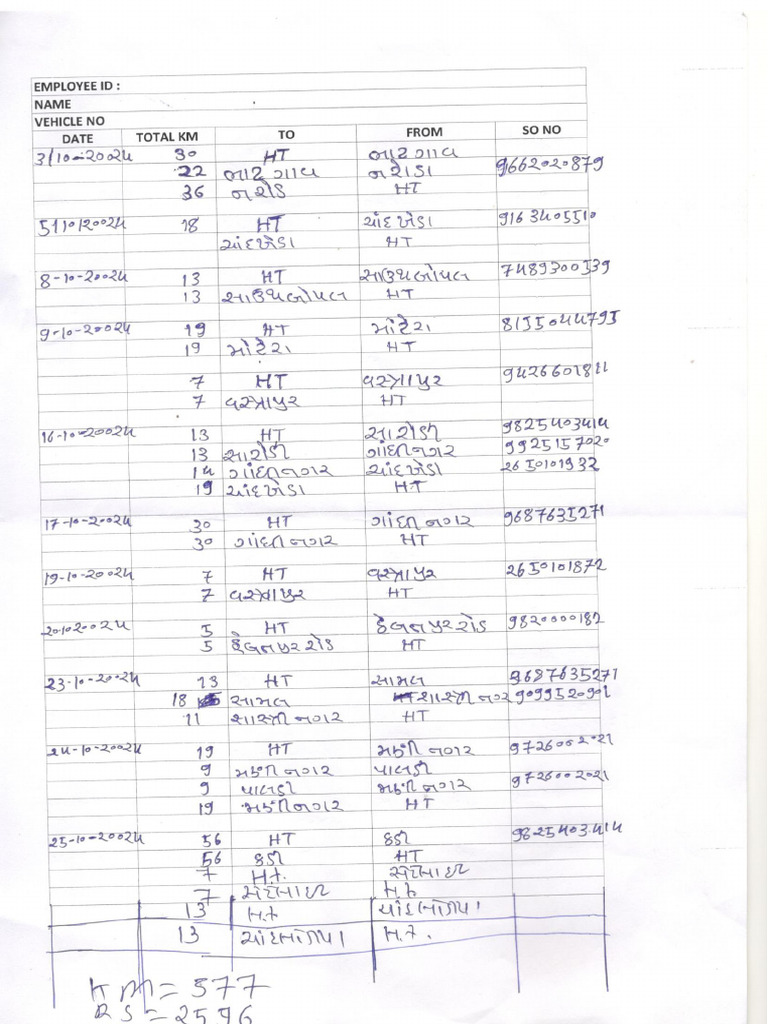 EMPLOYEE ID :
NAME
VEHICLE NO
DATE TOTAL KM TO FROM SO NO
3/10-20024 30 HT ભાટ ગાવ
22 ભાટ ગાવ નરોડા 9662020879
36 નરોડ HT
5/10/20024 18 HT ચાંદખેડા 9163405510
ચાંદખેડા HT
8-10-20024 13 HT સાઉથબોપલ 7489300539
13 સાઉથબોપલ HT
9-10-20024 19 HT મોટેરા 8155044795
19 મોટેરા HT
7 HT વસ્ત્રાપુર 9426601811
7 વસ્ત્રાપુર HT
16-10-20024 13 HT 9825403414
13 ગાંધીનગર 9925157020
14 ગાંધીનગર ચાંદખેડા 2650101932
19 ચાંદખેડા HT
17-10-20024 30 HT ગાંધીનગર 9687635271
30 ગાંધીનગર HT
19-10-20024 7 HT વસ્ત્રાપુર 2650101872
7 વસ્ત્રાપુર HT
201020024 5 HT 9820000182
5 HT
23-10-20024 13 HT સામલ 9687635271
18 સામલ શાસ્ત્રીનગર 909952090
11 શાસ્ત્રીનગર HT
24-10-20024 19 HT મણીનગર 9726002021
9 મણીનગર પાલડી
9 પાલડી મણીનગર 9726002021
19 મણીનગર HT
25-10-20024 56 HT કડી 9825403414
56 કડી HT
7 H.t.
7 H.t
13 H.t
13 H.t.
KM = 577
RS = 2596